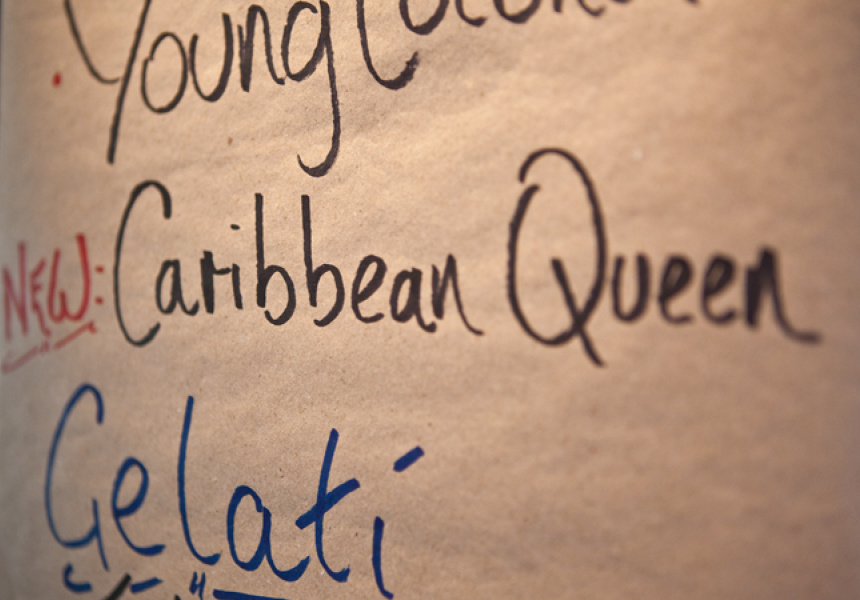 Young Coconut
NEW: Caribbean Queen
Gelati